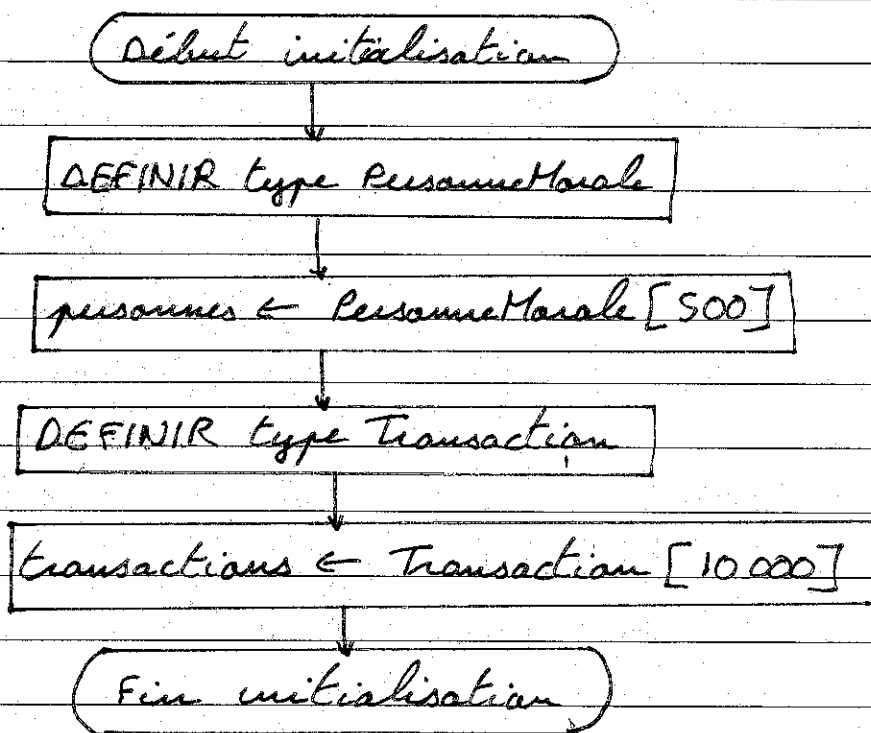 Début initialisation
DEFINIR type PersonneMorale
personnes ← PersonneMorale [500]
DEFINIR type Transaction
transactions ← Transaction [10 000]
Fin initialisation